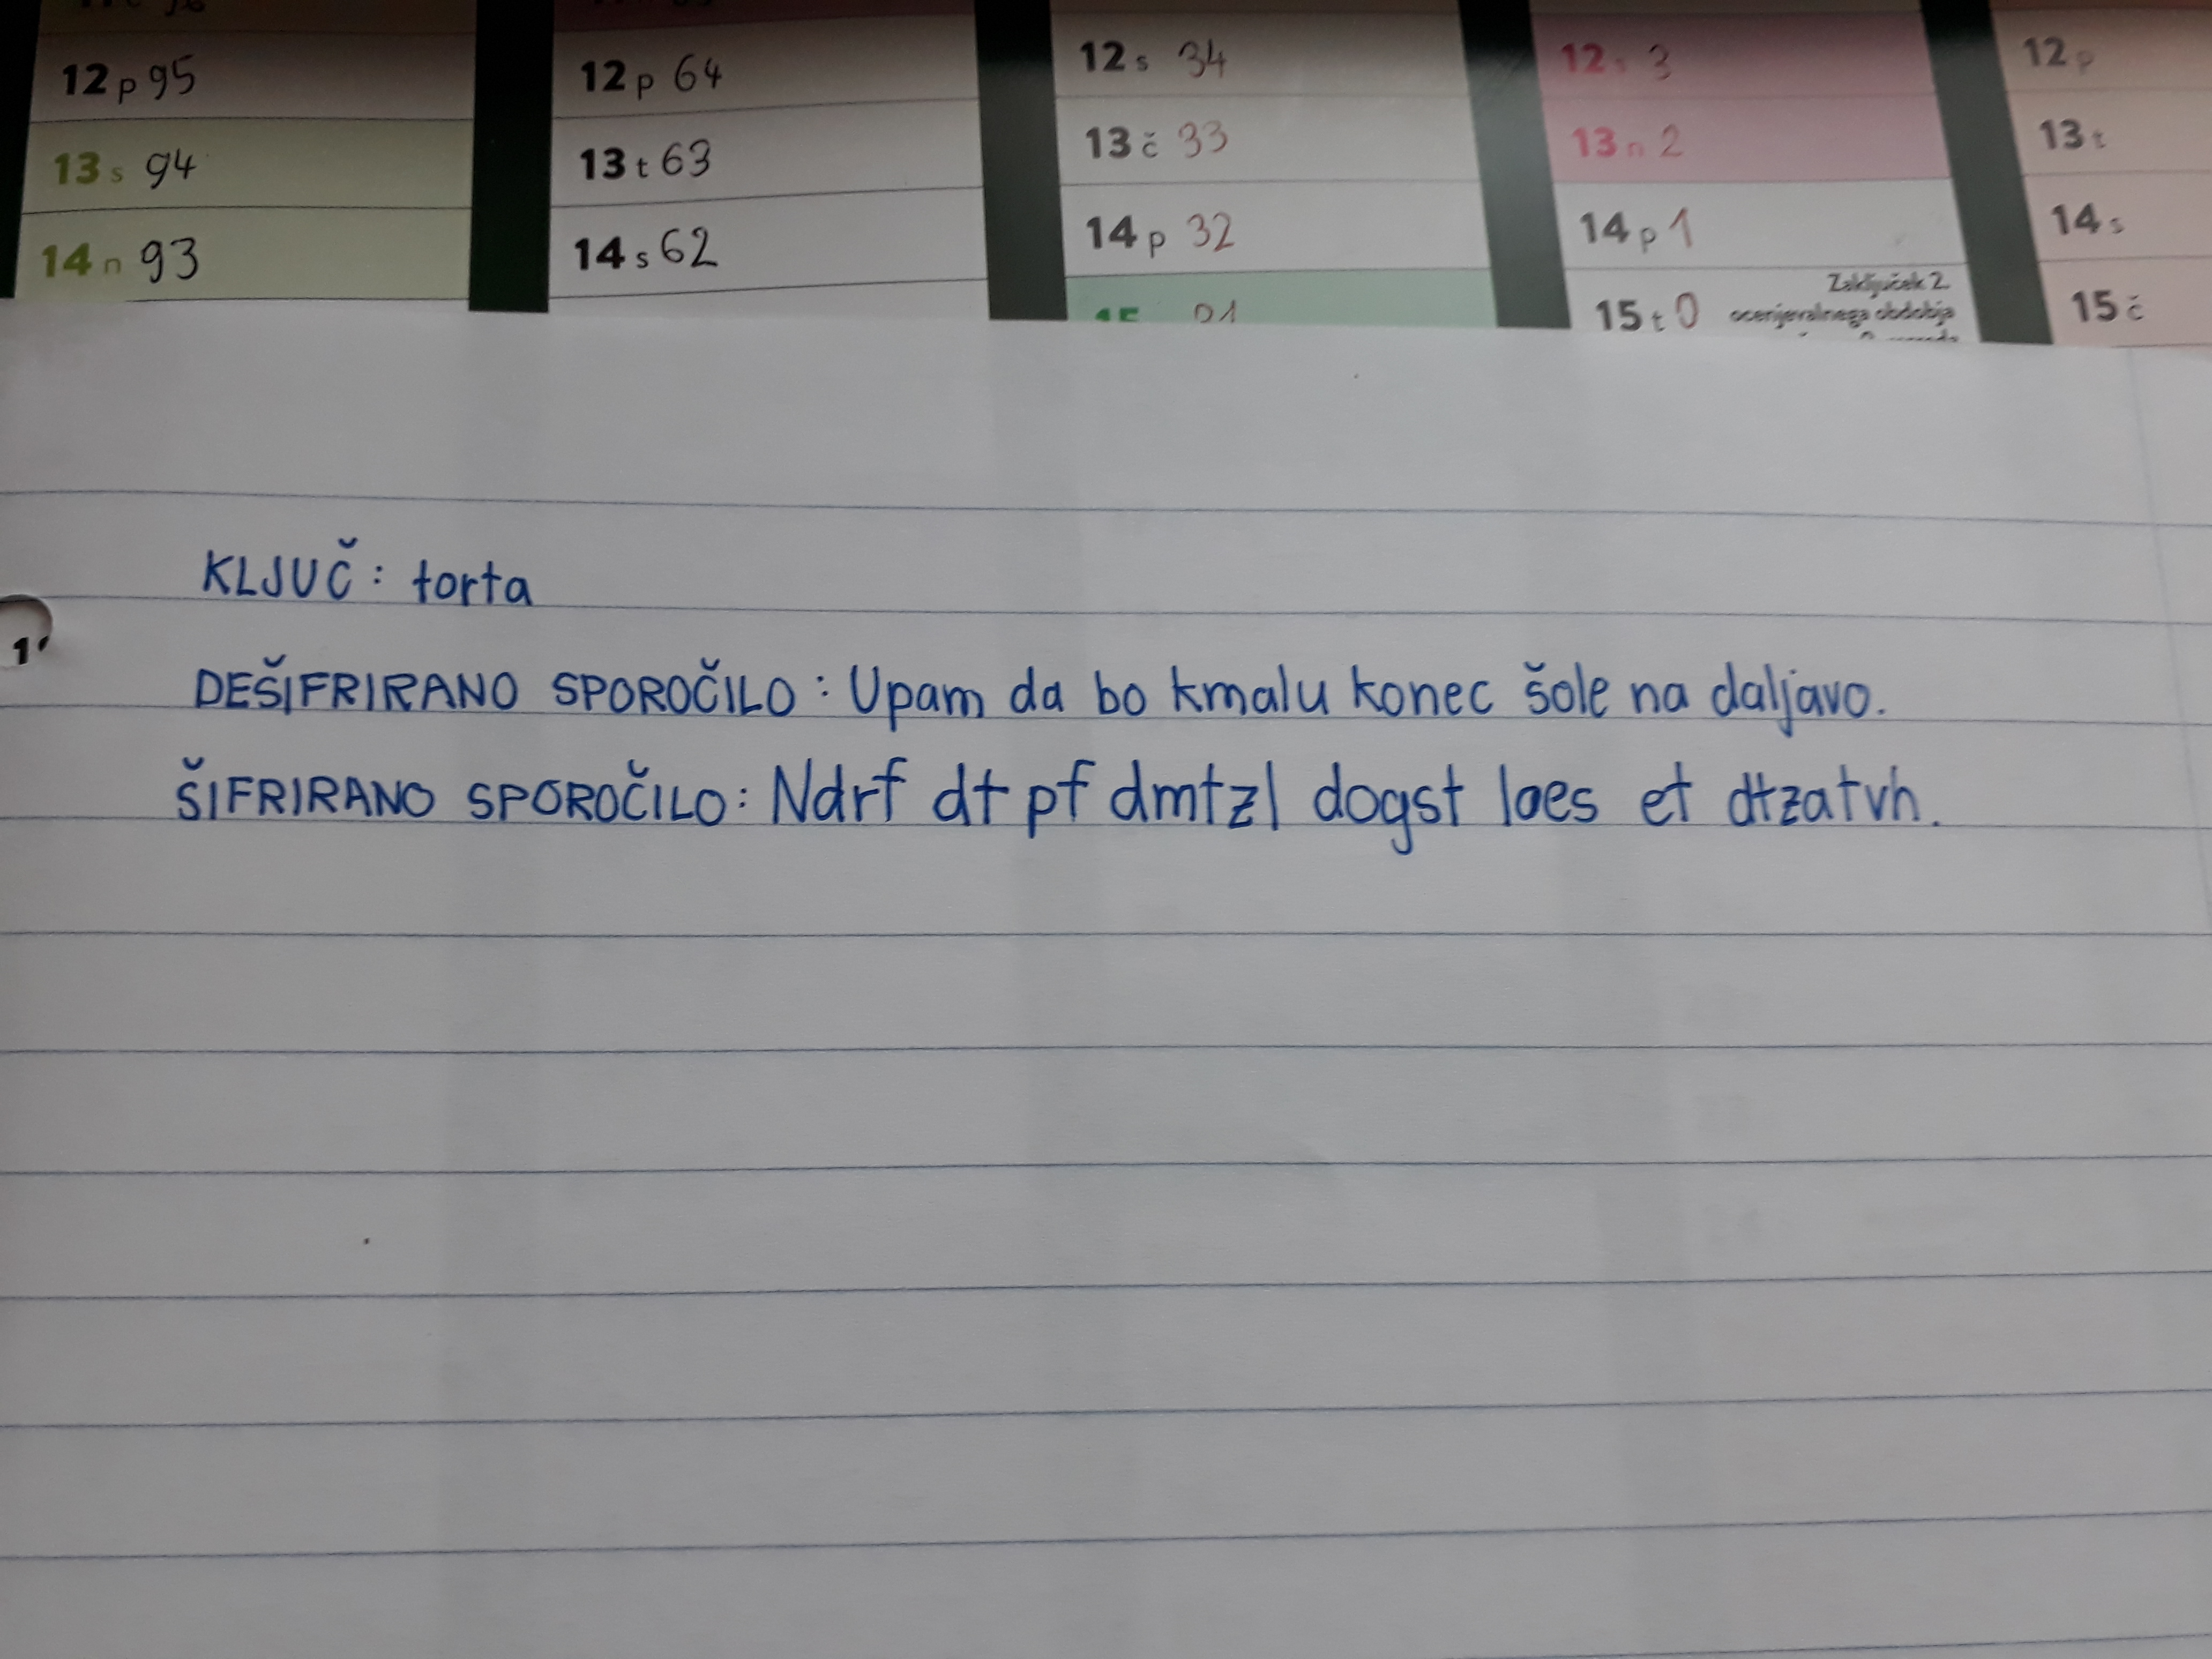 12 p 95 12 p 64 12 s 34 12 s 3 12 p
13 s 94 13 t 63 13 č 33 13 n 2 13 t
14 n 93 14 s 62 14 p 32 14 p 1 14 s
15 t 0 Zaključek 2. 15 č
ocenjevalnega obdobja
KLJUČ: torta
1.
DEŠIFRIRANO SPOROČILO: Upam da bo kmalu konec šole na daljavo.
ŠIFRIRANO SPOROČILO: Ndrf dt pf dmtzl dogst loes et dtzatvh.